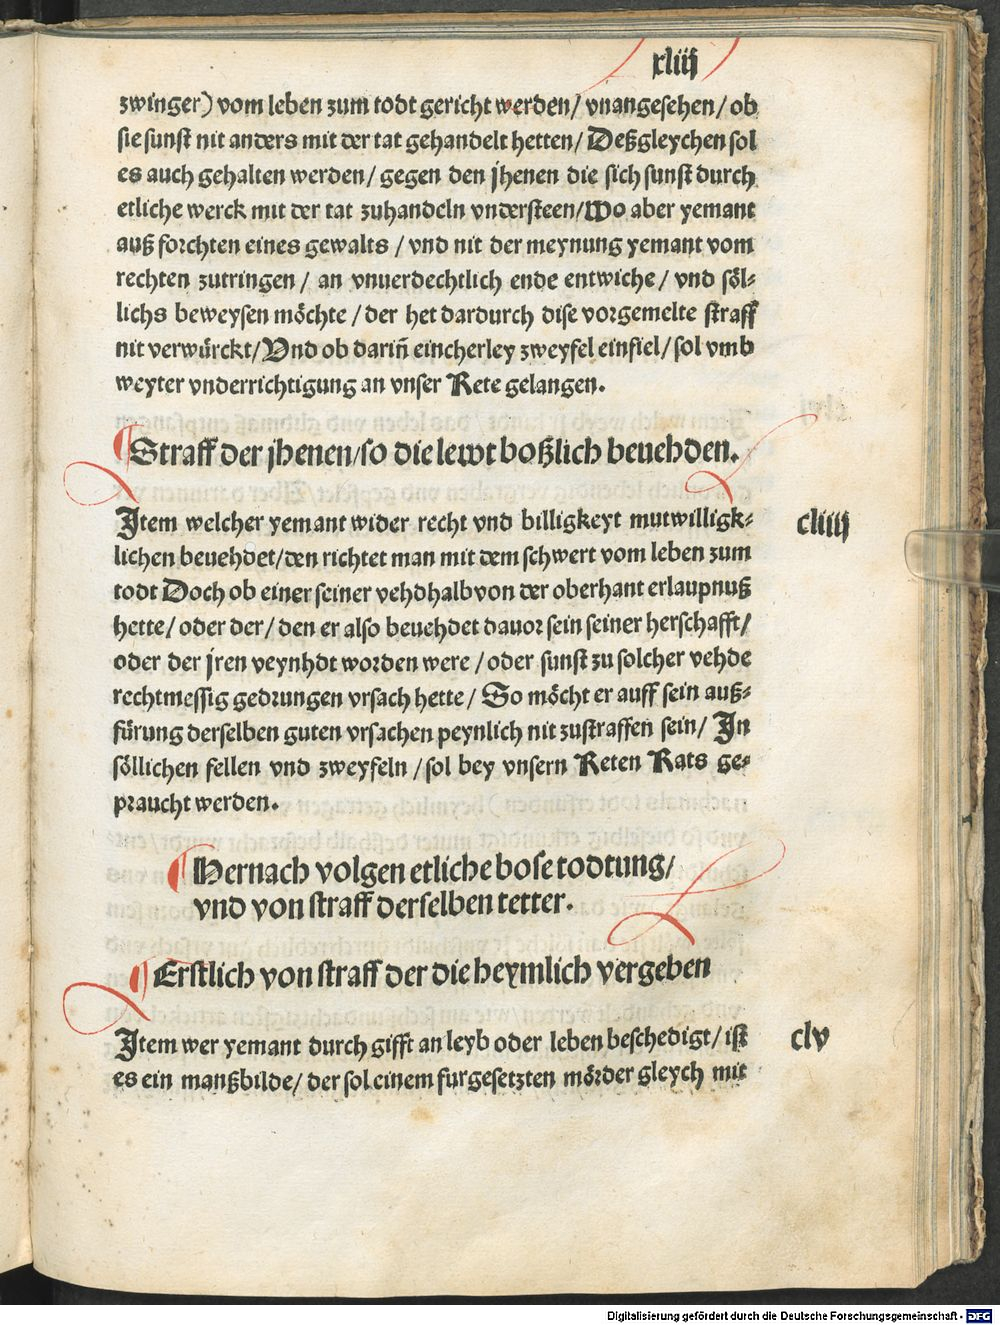 xliij
zwinger) vom leben zum todt gericht werden/ vnangesehen/ ob
sie sunst nit anders mit der tat gehandelt hetten/ Deßgleychen sol
es auch gehalten werden/ gegen den jhenen die sich sunst durch
etliche werck mit der tat zuhandeln vndersteen/ Wo aber yemant
auß forchten eines gewalts / vnd nit der meynung yemant vom
rechten zutringen / an vnuerdechtlich ende entwiche / vnd söl-
lichs beweysen möchte / der het dardurch dise vorgemelte straff
nit verwürckt/ Vnd ob darin̄ eincherley zweyfel einfiel/ sol vmb
weyter vnderrichtigung an vnser Rete gelangen.
Straff der jhenen/ so die lewt boßlich beuehden.
Item welcher yemant wider recht vnd billigkeyt mutwilligk-
cliiij
lichen beuehdet/ den richtet man mit dem schwert vom leben zum
todt Doch ob einer seiner vehdhalb von der oberhant erlaupnuß
hette/ oder der/ den er also beuehdet dauor sein seiner herschafft/
oder der jren veynhdt worden were / oder sunst zu solcher vehde
rechtmessig gedrungen vrsach hette/ So möcht er auff sein auß-
fürung derselben guten vrsachen peynlich nit zustraffen sein/ In
söllichen fellen vnd zweyfeln / sol bey vnsern Reten Rats ge-
praucht werden.
Hernach volgen etliche bose todtung/
vnd von straff derselben tetter.
Erstlich von straff der die heymlich vergeben
Item wer yemant durch gifft an leyb oder leben beschedigt/ ist
clv
es ein manßbilde/ der sol einem furgesetzten mörder gleych mit
Digitalisierung gefördert durch die Deutsche Forschungsgemeinschaft - DFG